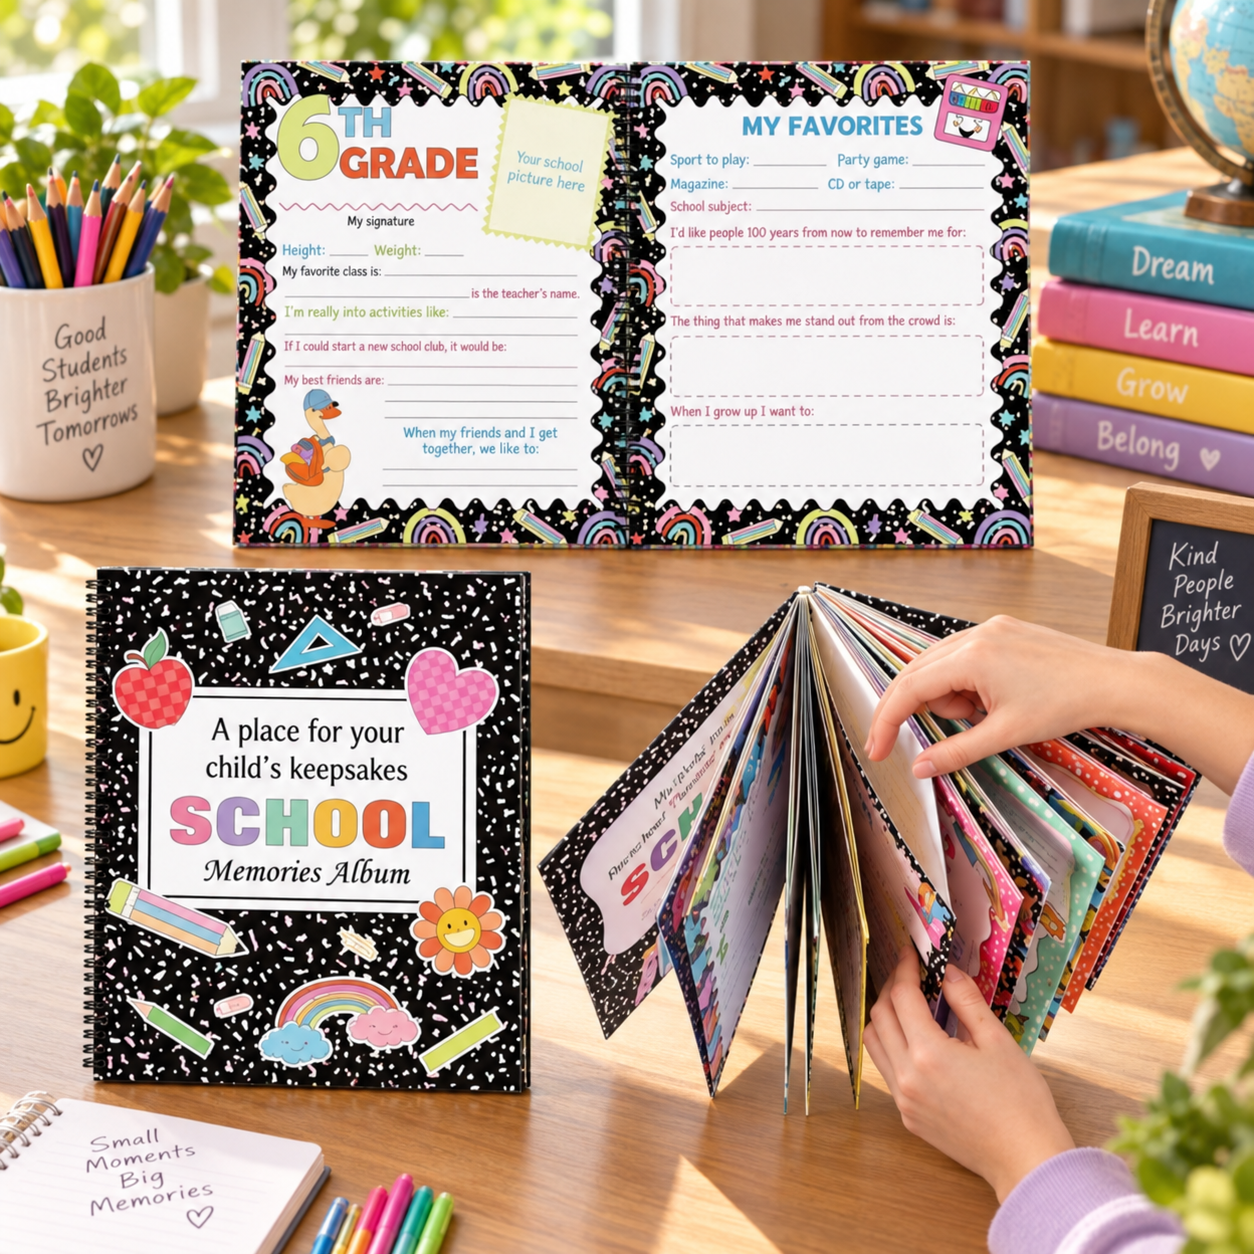 6TH
GRADE
Your school
picture here
My signature
Height: ____ Weight: ____
My favorite class is:
is the teacher's name.
I'm really into activities like:
If I could start a new school club, it would be:
My best friends are:
When my friends and I get
together, we like to:
MY FAVORITES
Sport to play: ____ Party game: ____
Magazine: ____ CD or tape: ____
School subject:
I'd like people 100 years from now to remember me for:
The thing that makes me stand out from the crowd is:
When I grow up I want to:
Good
Students
Brighter
Tomorrows
Dream
Learn
Grow
Belong
Kind
People
Brighter
Days
A place for your
child's keepsakes
SCHOOL
Memories Album
Small
Moments
Big
Memories